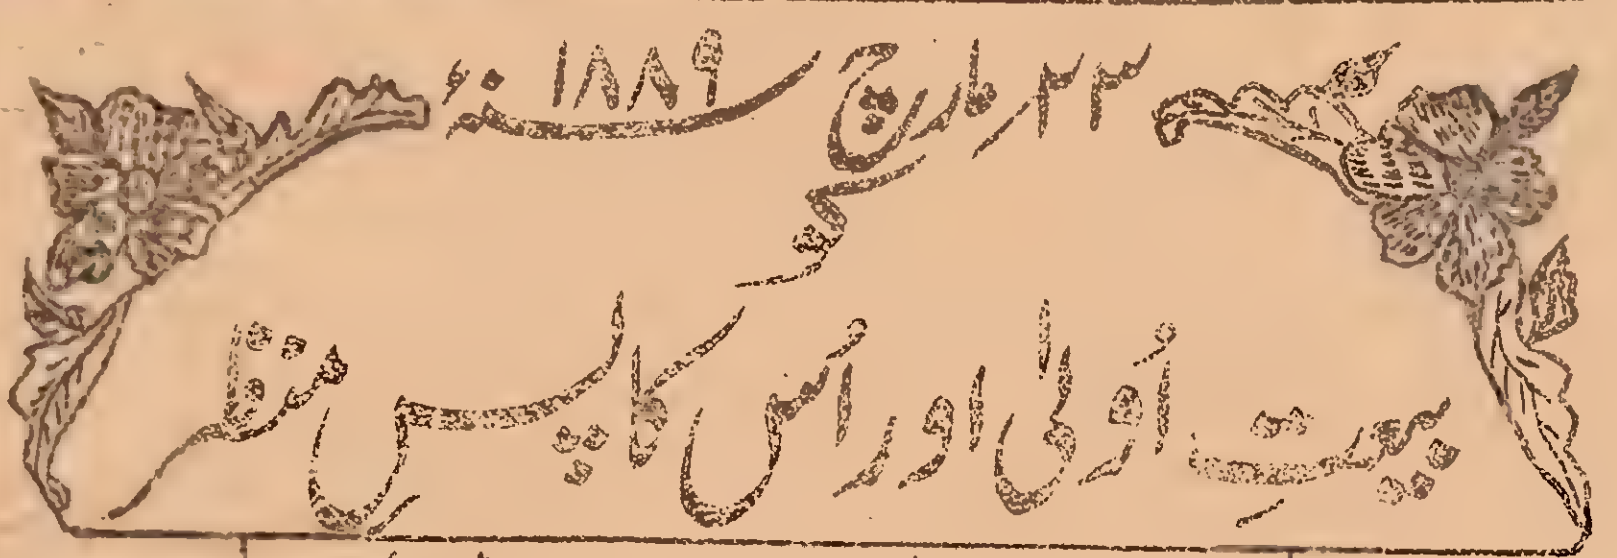 ۲۳؍مارچ ۱۸۸۹ء
کو
بیعتِ اُولیٰ اور اُس کا پس منظر